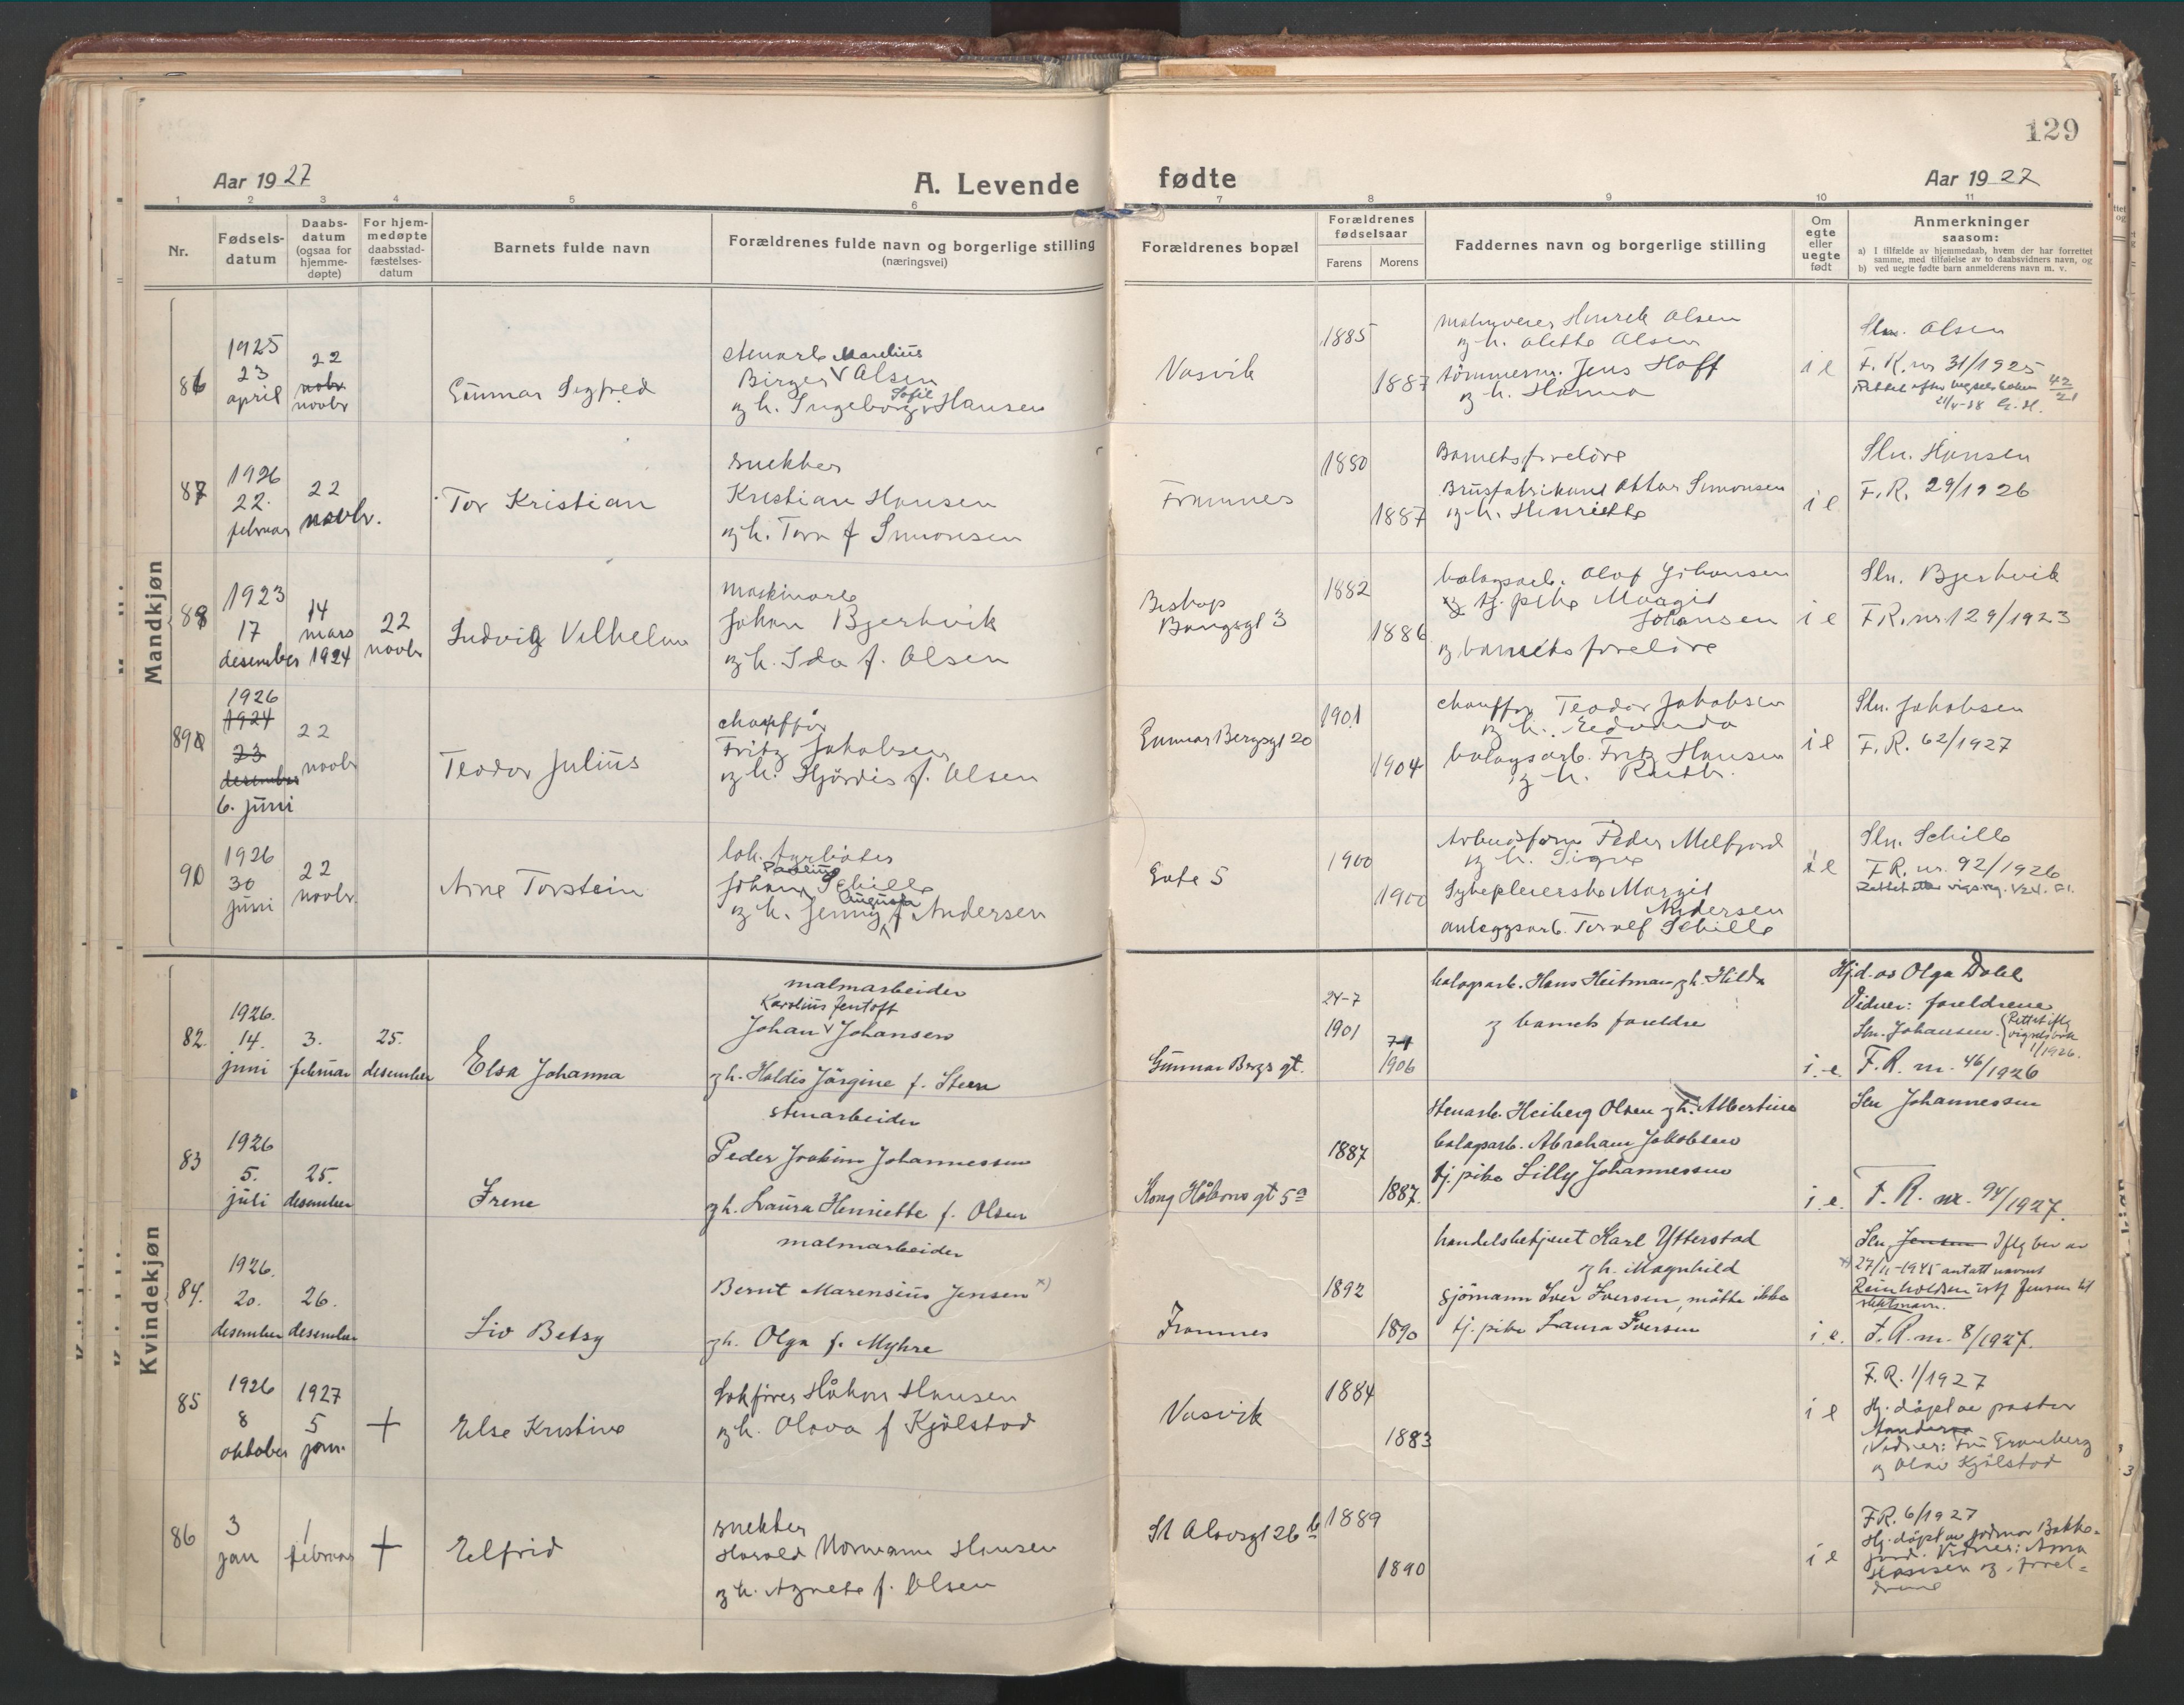 129
Aar 1927
A. Levende fødte
Aar 1927
1 2 3 4 5 6 7 8 9 10 11
Nr.
Fødsels-
datum
Daabs-
datum
(ogsaa for
hjemme-
døpte)
For hjem-
medøpte
daabsstad-
fæstelses-
datum
Barnets fulde navn
Forældrenes fulde navn og borgerlige stilling
(næringsvei)
Forældrenes bopæl
Forældrenes
fødselsaar
Farens
Morens
Faddernes navn og borgerlige stilling
Om
egte
eller
uegte
født
Anmerkninger
saasom:
a) I tilfælde av hjemmedaab, hvem der har forrettet
samme, med tilføielse av to daabsvidners navn, og
b) ved uegte fødte barn anmelderens navn m. v.
Mandkjøn
86
1925
23
april
22
novbr
novbr
Gunnar Sigfred
stenarb Marelius
Birger V Olsen
og h. Ingeborg Sofie Hansen
Vasvik
1885
1887
Henrik Olsen
og h. Alette Olsen
tömmerm. Jens Hoff
og h. Hanna
i e
Sln. Olsen
F. R. nr 31/1925
42/21
21/4-38 G. H.
87
1926
22.
februar
22
novbr.
Tor Kristian
snekker
Kristian Hansen
og h. Tora f Simonsen
Framnes
1880
1887
Barnets foreldre
Brusfabrikant Ottar Simonsen
og h. Henriette
i e
Sln. Hansen
F. R. 29/1926
88
1923
17
desember
14
mars
1924
22
novbr
Ludvig Vilhelm
maskinarb
Johan Bjerkvik
og h. Ida f. Olsen
Biskop
Bangsgt 3
1882
1886
bolagsarb. Olaf Johansen
og tj. pike Margit
Johansen
og barnets foreldre
i e
Sln. Bjerkvik
F.R. nr 129/1923
89
1926
1924
23
desember
6. juni
22
novbr
Teodor Julius
chauffør
Fritz Jakobsen
og h. Hjördis f. Olsen
Gunnar Bergsgt 20
1901
1904
chauffør Teodor Jakobsen
og h. Edvarda
bolagsarb. Fritz Hansen
og h. Ruth.
i e
Sln. Jakobsen
F. R. 62/1927
90
1926
30
juni
22
novbr
Arne Torstein
lok. fyrböter
Paulius
Johan Schille
Augusta
og h. Jenny f Andersen
Gate 5
1900
1900
Arbeidsform Peder Melfjord
og h. Signe
Sykepleierske Margit
Andersen
anleggsarb. Toralf Schille
i e
Sln. Schille
F.R. nr. 92/1926
Kvindekjøn
82.
1926.
14.
juni
3.
februar
25.
desember
Elsa Johanna
malmarbeider
Karolius Jentoft
Johan V Johansen
og h. Haldis Jörgine f. Steen
Gunnar Bergs gt.
24-7
1901
7-1
1906
bolagsarb. Hans Heitman og h. Hilda
og barnets foreldre
i. e.
Hjd. av Olga Dahl
Vidner: foreldrene
Sln. Johansen. Rettet iflg
vigselsbok
1/1926.
F. R. nr. 46/1926
83
1926
5.
juli
25.
desember
Irene
stenarbeider
Peder Joakim Johannessen
og h. Laura Henriette f. Olsen
Kong Håkons gt 5a
1887
1887.
Stenarb. Heiberg Olsen og h. Albertine
bolagsarb. Abraham Jakobsen
tj. pike Lilly Johannessen
i. e.
Sln Johannessen
F. R. nr. 94/1927.
84.
1926.
20.
desember
26.
desember
Liv Betsy
malmarbeider
Bernt Marensius Jensen x)
og h. Olga f. Myhre
Framnes
1892
1890
handelsbetjent Karl Ytterstad
og h. Magnhild
sjömann Iver Iversen, måtte ikke
tj. pike Laura Iversen
i e.
Sln. Jensen Iflg bev av
x) 27/11-1945 antatt navnet
Reinholdsen istf Jensen til
slektsnavn.
F. R. nr. 8/1927.
85
1926
8
oktober
1927
5
jan.
+
Else Kristine
Lokfører Håkon Hansen
og h. Olava f Kjölstad
Vasvik
1884
1883
i e
F. R. 1/1927
Hj. döpt av pastor
Vidner: Fru Granberg
og Olav Kjölstad
86
3
jan
1
februar
+
Elfrid
snekker
Harald Normann Hansen
og h. Agnete f. Olsen
St Olavsgt 26 b
1889
1890
i e
F.R. 6/1927
Hj. döpt av jordmor Bakke-
jord. Vidner: Anna
Hansen og forel-
drene